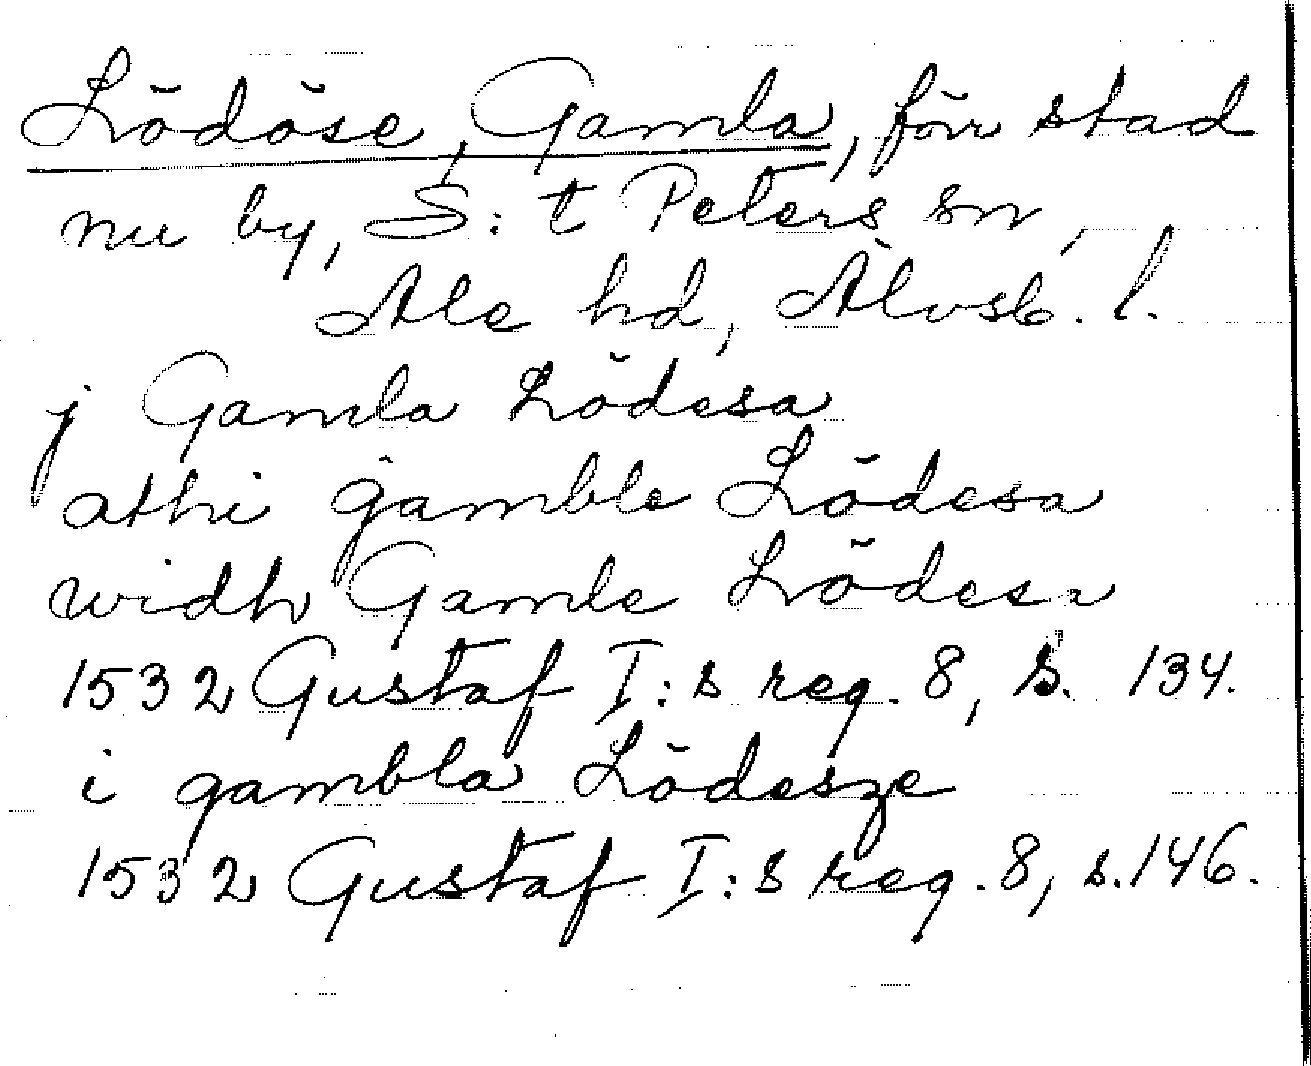 Lödöse, Gamla, förr stad
nu by, S:t Peters sn,
Ale hd, Älvsb. l.
j Gamla Lödesa
athi gamble Lödesa
widh Gamle Lödesa
1532 Gustaf I:s reg. 8, s. 134.
i gambla Lödesze
1532 Gustaf I:s reg. 8, s. 146.